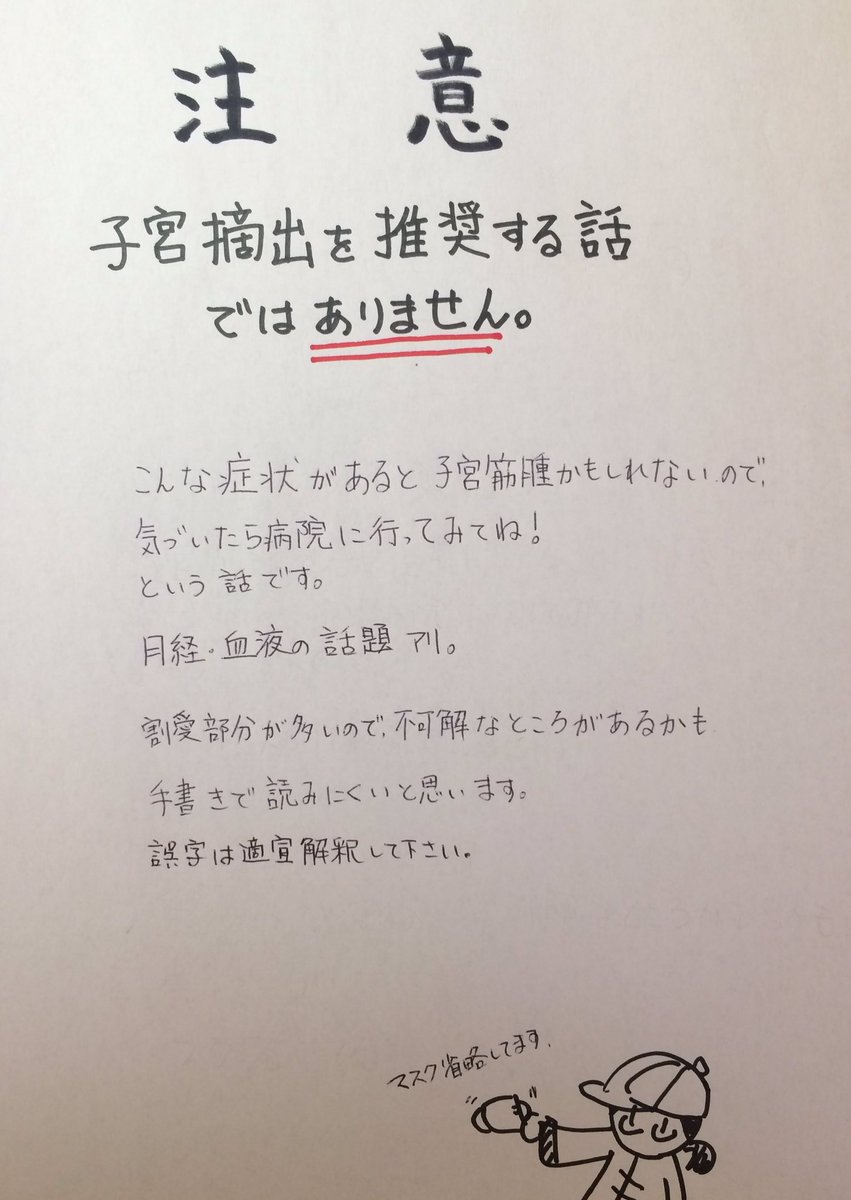 注 意
子宮摘出を推奨する話
ではありません。
こんな症状があると子宮筋腫かもしれないので、
気づいたら病院に行ってみてね!
という話です。
月経・血液の話題アリ。
割愛部分が多いので、不可解なところがあるかも
手書きで読みにくいと思います。
誤字は適宜解釈して下さい。
マスク省略してます.